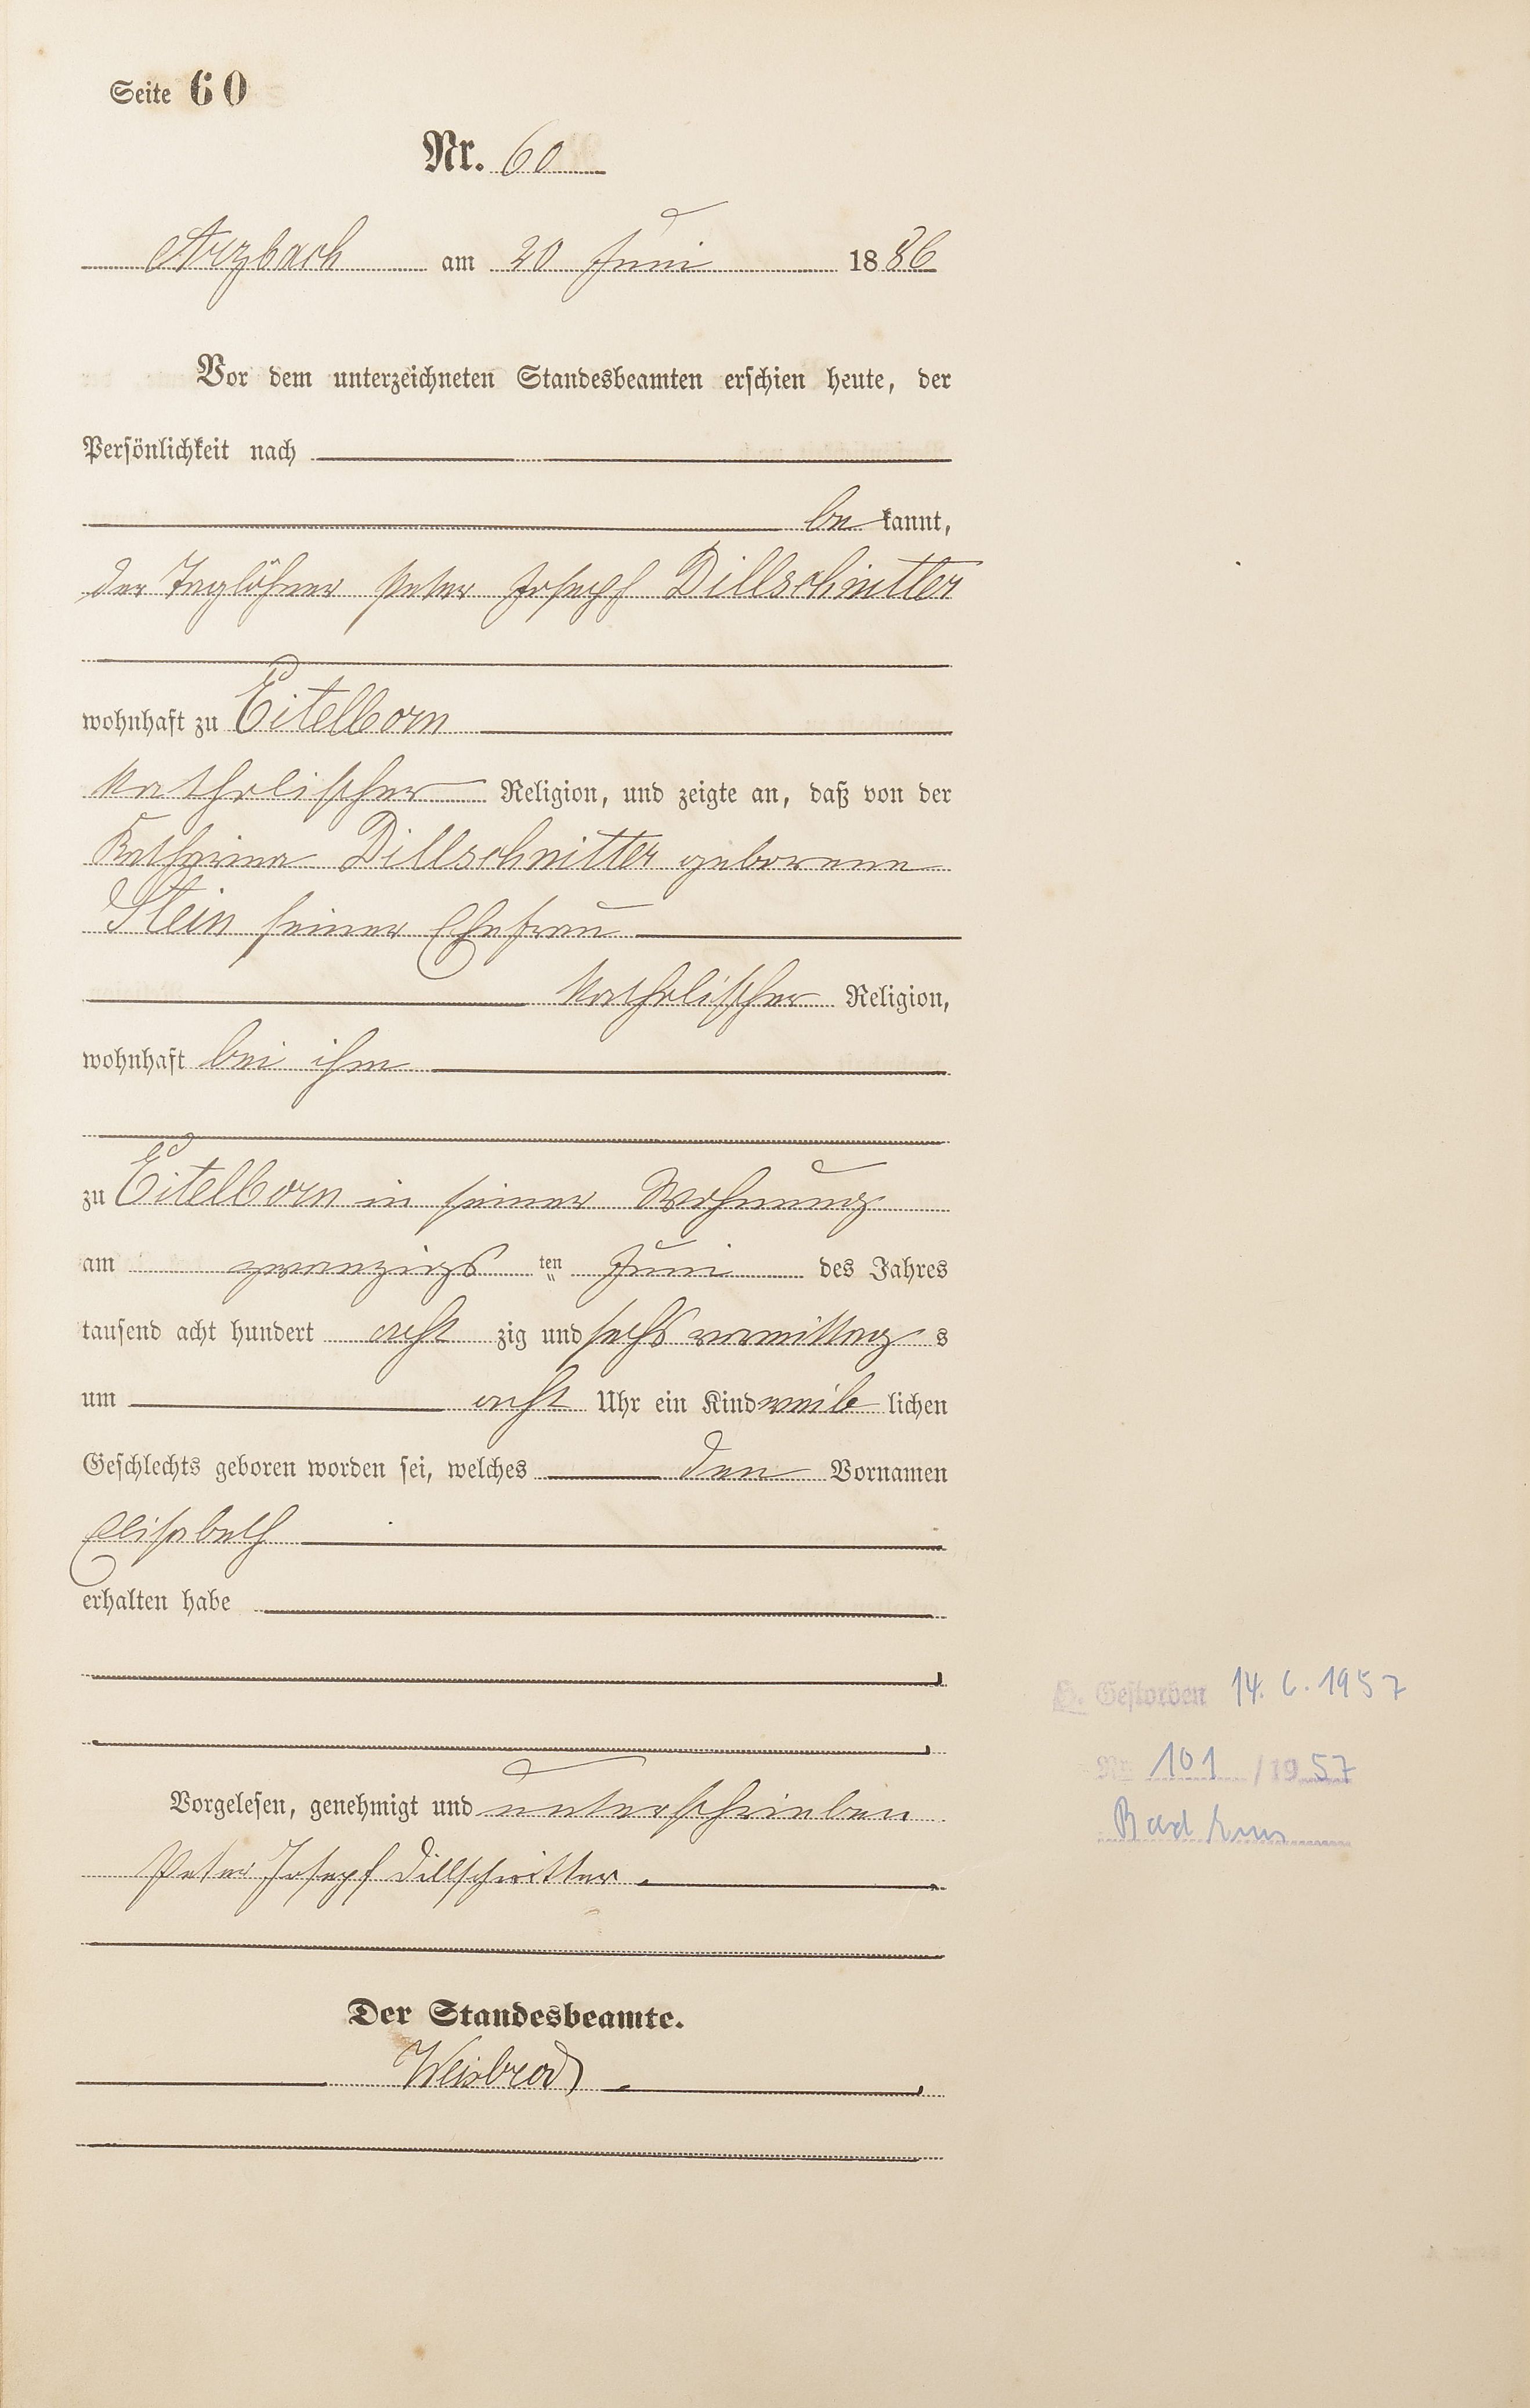 Seite 60
Nr. 60
Arzbach am 20 Juni 1886
Vor dem unterzeichneten Standesbeamten erschien heute, der
Persönlichkeit nach
be kannt,
der Taglöhner Peter Joseph Dillschnitter
wohnhaft zu Eitelborn
katholischer Religion, und zeigte an, daß von der
Katharina Dillschnitter geborene
Stein seiner Ehefrau
katholischer Religion,
wohnhaft bei ihm
zu Eitelborn in seiner Wohnung
am zwanzigs ten Juni des Jahres
tausend acht hundert acht zig und sechs vormittag s
um acht Uhr ein Kind weib lichen
Geschlechts geboren worden sei, welches den Vornamen
Elisabeth
erhalten habe
Vorgelesen, genehmigt und unterschrieben
Peter Josepf Dillschnitter.
Der Standesbeamte.
Weisbrod
Gestorben 14. 6. 1957
Nr. 101 /1957
Bad Ems